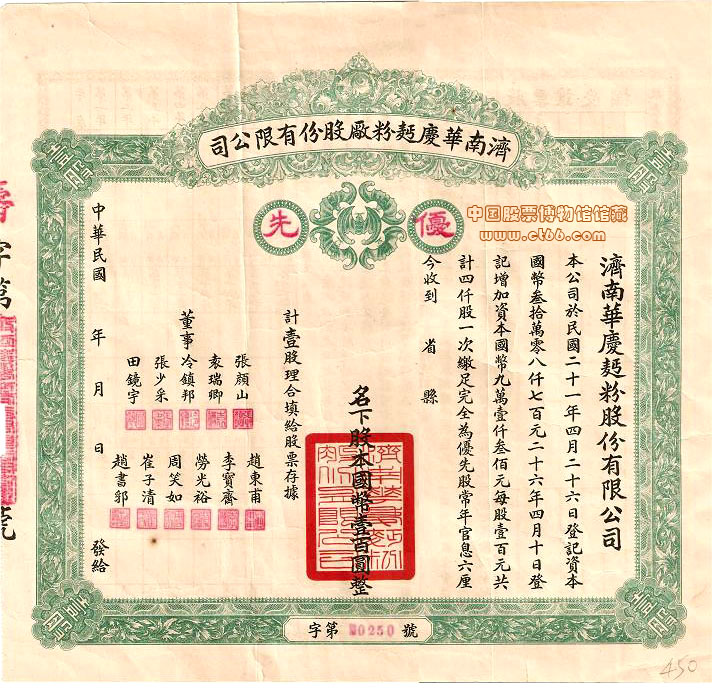 濟南華慶麪粉廠股份有限公司
優先
中国股票博物馆馆藏
www.ct66.com
濟南華慶麪粉股份有限公司
本公司於民國二十一年四月二十六日登記資本
國幣叁拾萬零八仟七百元二十六年四月十日登
記增加資本國幣九萬壹仟叁佰元每股壹百元共
計四仟股一次繳足完全為優先股常年官息六厘
今收到 省 縣
名下股本國幣壹百圓整
計壹股理合填給股票存據
董事
張顏山
袁瑞卿
冷鎮邦
張少采
田鏡宇
趙東甫
李寶齋
勞光裕
周笑如
崔子清
趙書
中華民國 年 月 日 發給
字第 0250 號
字第
號
450